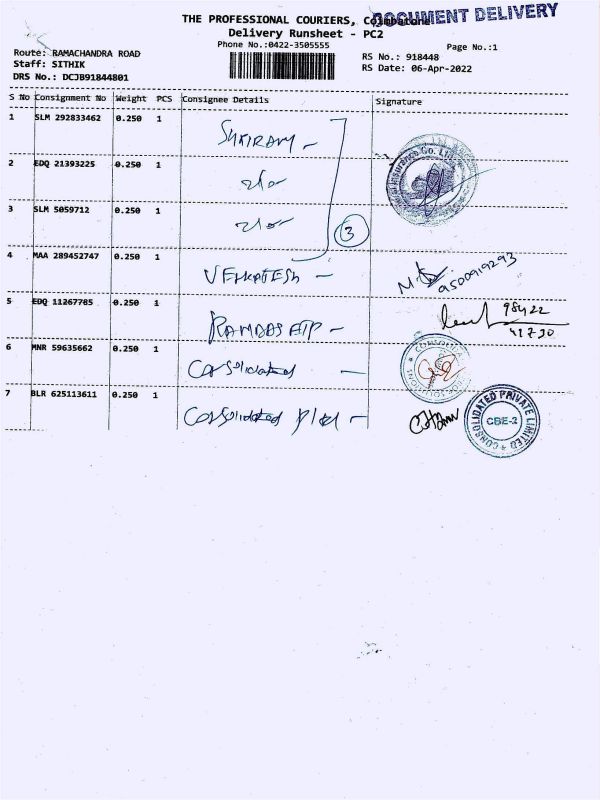 DOCUMENT DELIVERY
THE PROFESSIONAL COURIERS, Coimbatore
Delivery Runsheet - PC2
Phone No.:0422-3505555
Page No.:1
Route: RAMACHANDRA ROAD
Staff: SITHIK
DRS No.: DCJB91844801
RS No.: 918448
RS Date: 06-Apr-2022
S No Consignment No Weight PCS Consignee Details Signature
1 SLM 292833462 0.250 1
SHRIRAM -
Insurance Co. Ltd.
2 EDQ 21393225 0.250 1
3 SLM 5059712 0.250 1
3
4 MAA 289452747 0.250 1
VENKATESH -
9500919293
5 EDQ 11267785 0.250 1
RAMDAS
98422
41730
6 MNR 59635662 0.250 1
Consolidated -
7 BLR 625113611 0.250 1
Consolidated
CONSOLIDATED PRIVATE LIMITED
CBE-2